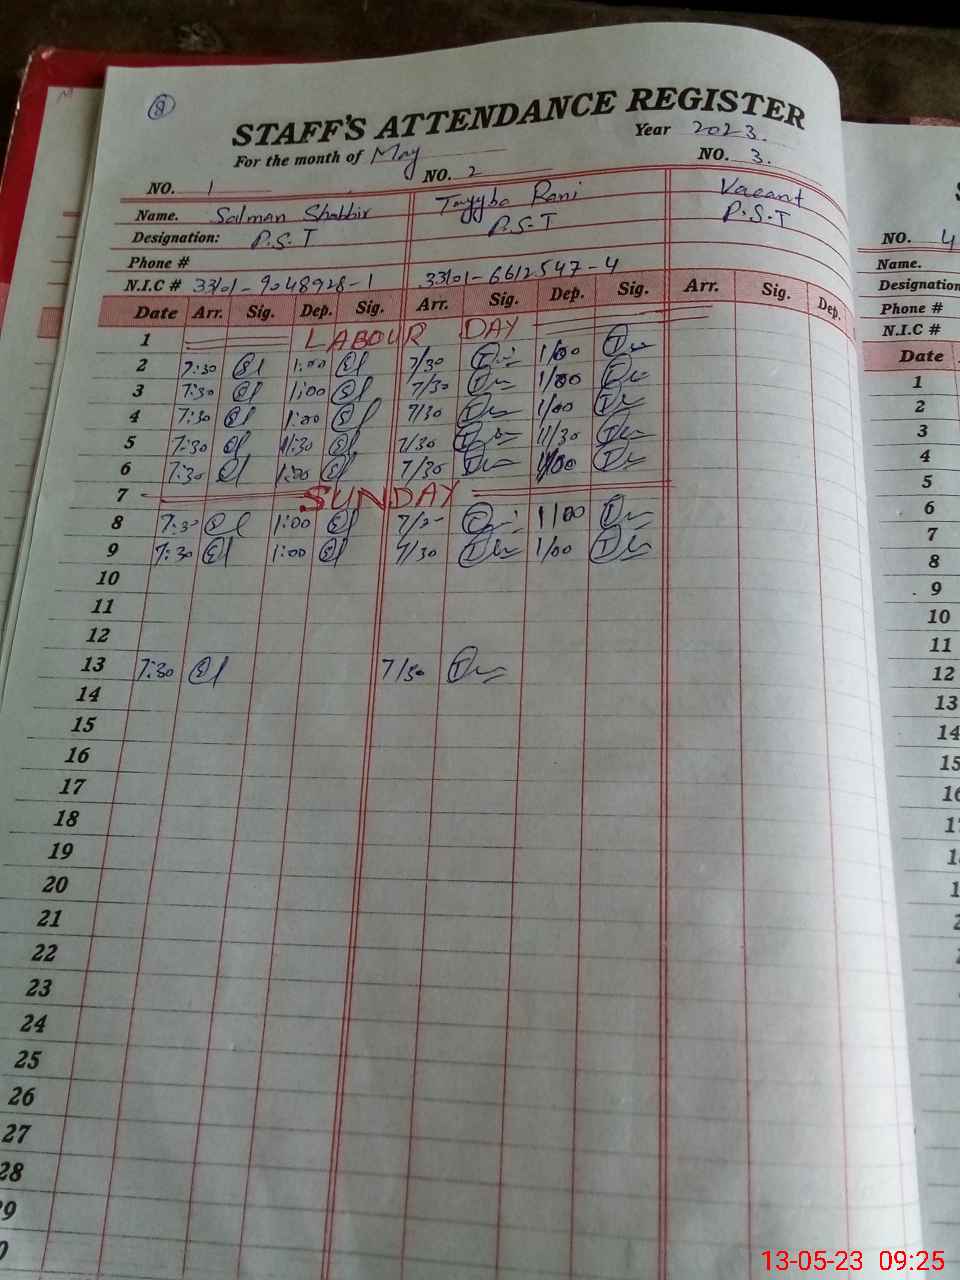 8
STAFF'S ATTENDANCE REGISTER
For the month of May Year 2023.
NO. 1 NO. 2 NO. 3.
Name. Salman Shabbir Tayyba Rani Vacant
Designation: P.S.T P.S.T P.S.T
Phone #
N.I.C # 33101-9048928-1 33101-6612547-4
Date Arr. Sig. Dep. Sig. Arr. Sig. Dep. Sig. Arr. Sig. Dep.
1 LABOUR DAY
2 7:30 1:00 7/30 1/00
3 7:30 1:00 7/30 1/00
4 7:30 1:00 7/30 1/00
5 7:30 11:30 7/30 11/30
6 7:30 1:00 7/30 1/00
7 SUNDAY
8 7:30 1:00 1/00
9 7:30 1:00 7/30 1/00
10
11
12
13 7:30 7/30
14
15
16
17
18
19
20
21
22
23
24
25
26
27
28
9
0
NO. 4
Name.
Designation
Phone #
N.I.C #
Date
1
2
3
4
5
6
7
8
9
10
11
12
13
14
15
16
13-05-23 09:25